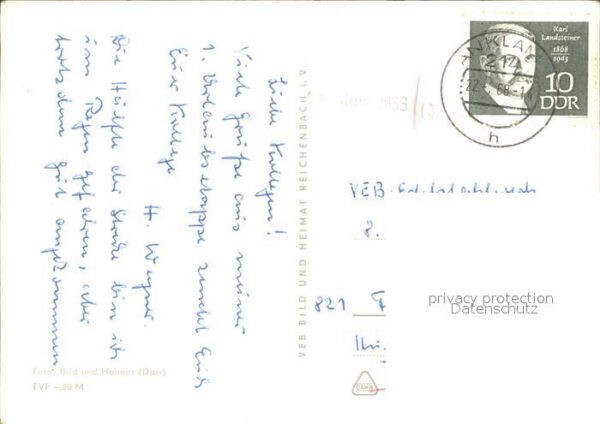 Liebe Kollegen!
Viele Grüße aus meiner
1. Urlaubsetappe sendet Euch
Euer Kollege
H. Wegner.
Die Hälfte der Strecke bin ich
im Regen gefahren, aber
trotzdem gut angekommen
VEB BILD UND HEIMAT REICHENBACH i. V.
Foto: Bild und Heimat (Darr)
EVP –,20 M
Karl
Landsteiner
1868
1943
10
DDR
ANKLAM
214
h
VEB
8.
821
privacy protection
Datenschutz